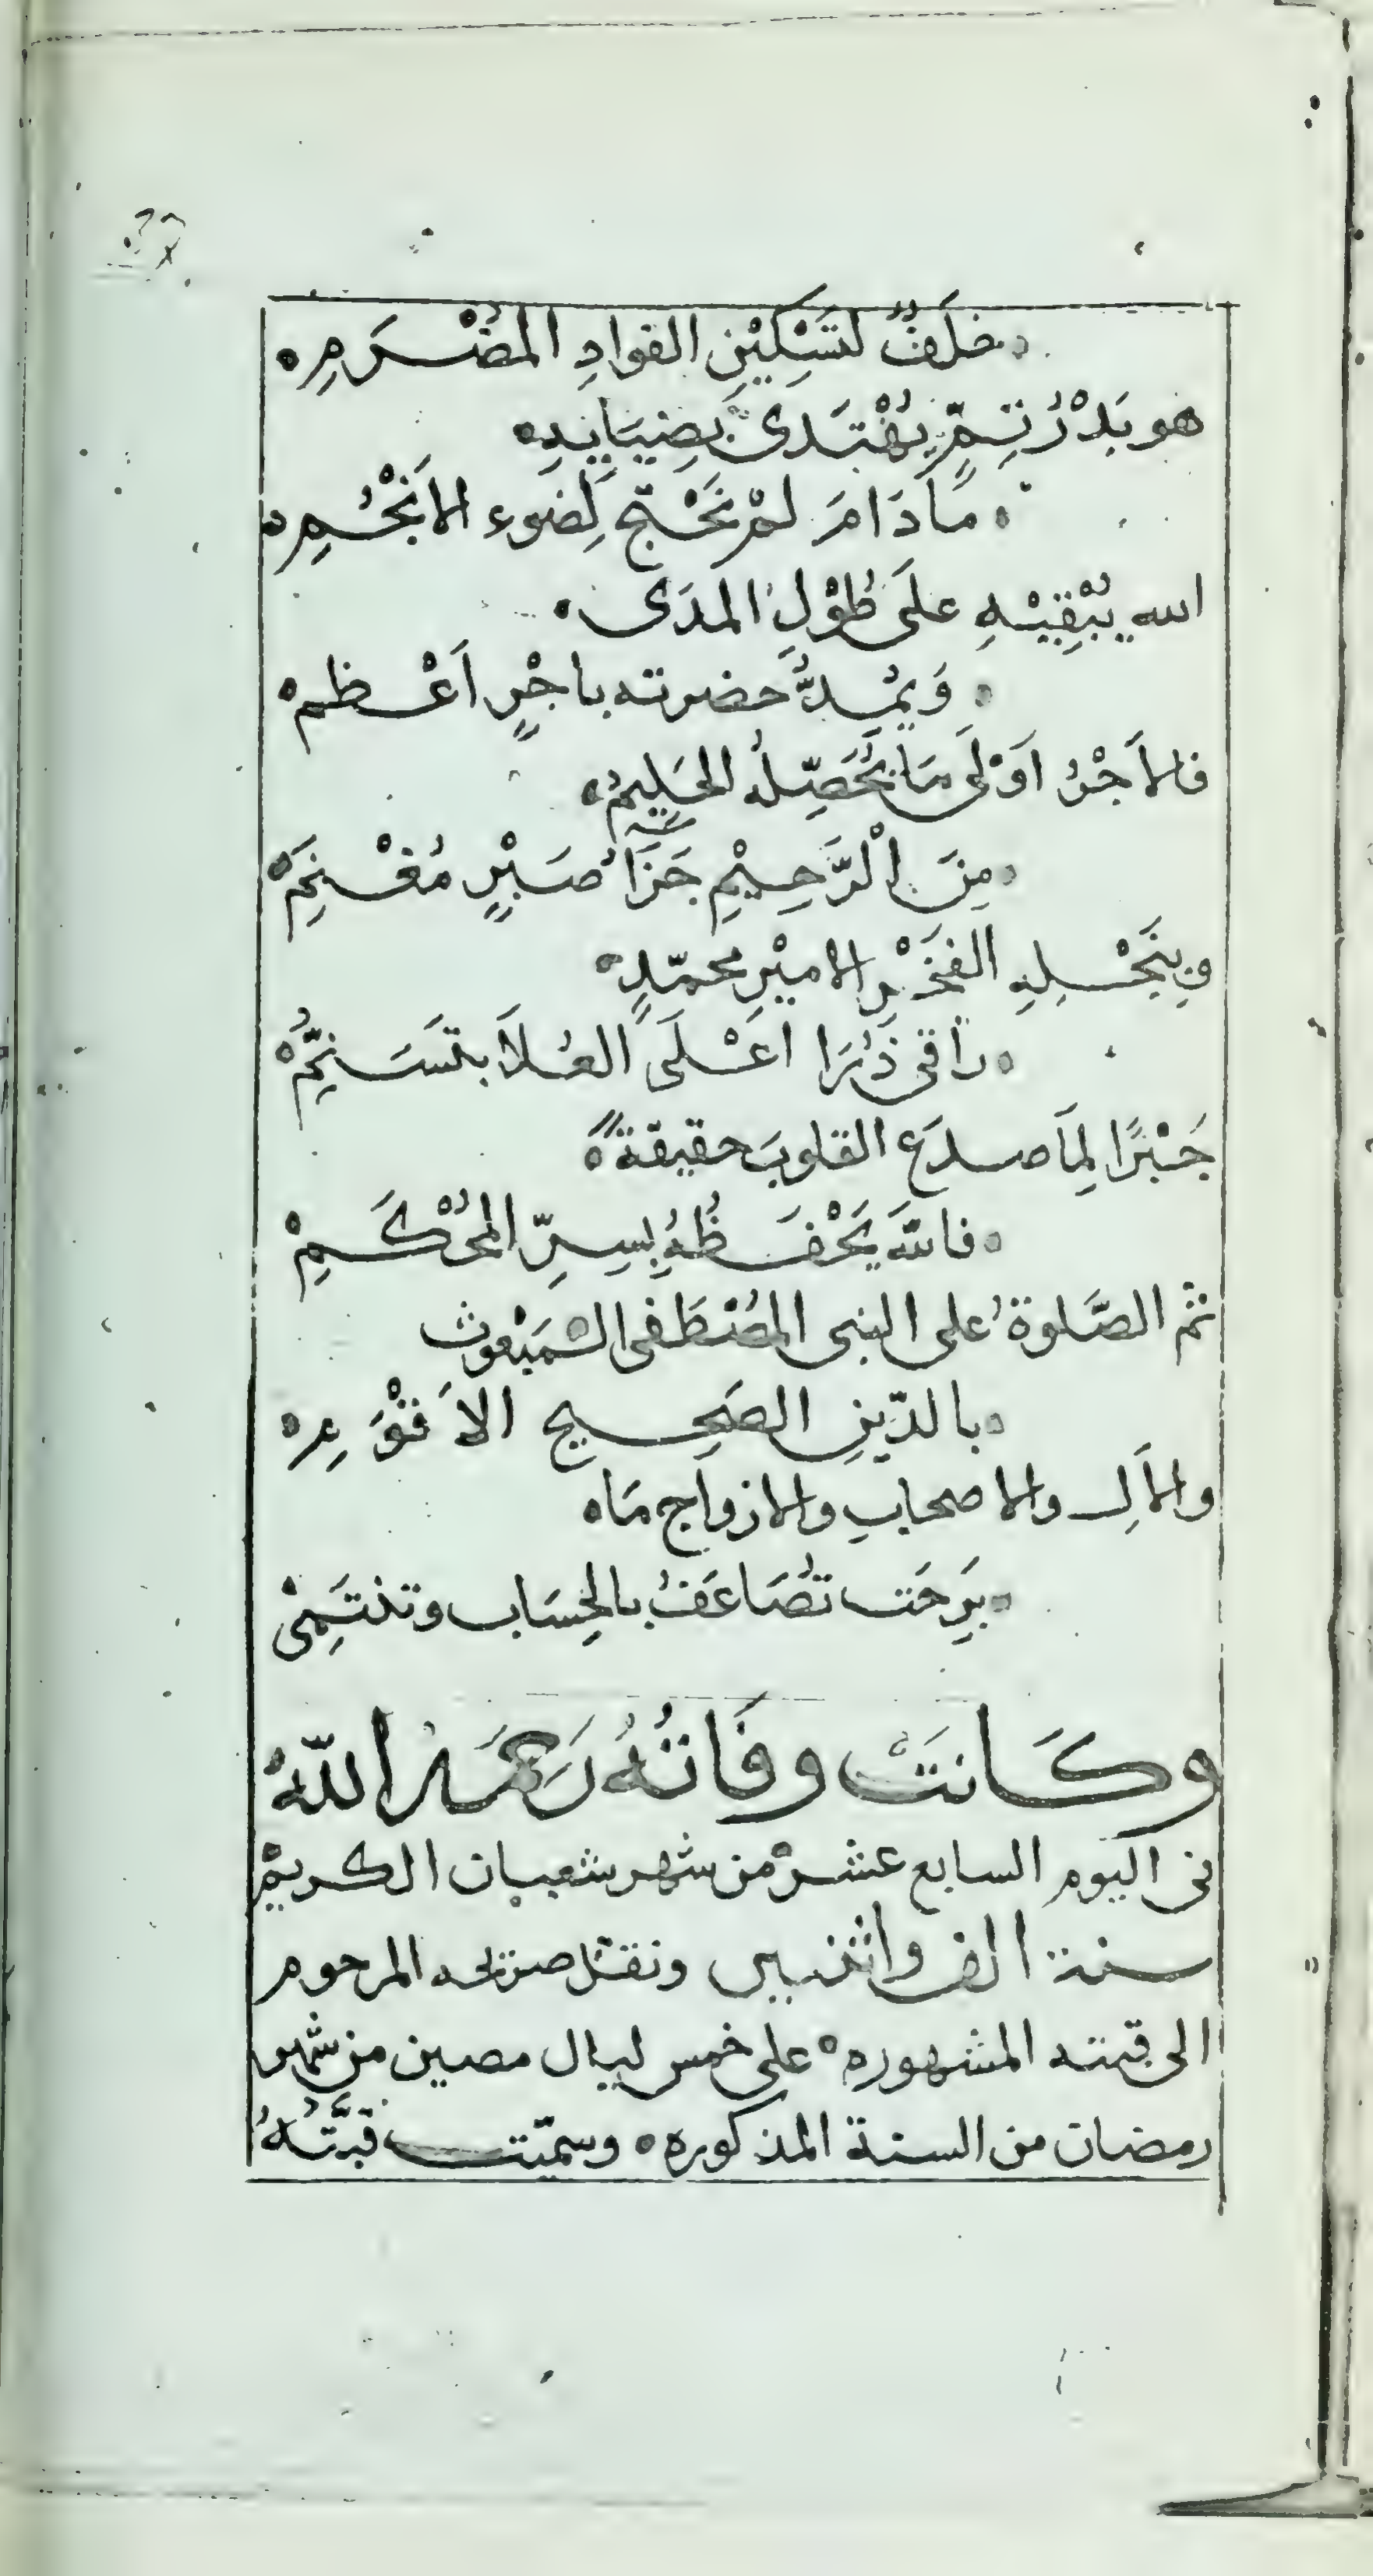 خَلَفٌ لتَسْكِيْنِ الفوادِ المُضْرَمِ
هو بَدْرُ تِمٍّ يُهْتَدَى بِضِيَائِهِ
مَا دَامَ لمْ نَحْتَجْ لِضَوء الاَنْجُمِ
الله يُبْقِيْهِ علَى طُوْلِ المدَى
وَيُمِدُّ حضرته باجْرٍ اَعْظم
فالاَجْرُ اَوْلَى مَا يُحَصِّلُه الحَلِيمُ
مِنَ الْرَّحِيْمِ جَزَاءُ صَبْرٍ مُفْخَمِ
وبِنَجْلِهِ الفَخْرِ الاميْرِ محمّدٍ
راقى ذُرَا اعْلَى العُلاَ بتَسَنُّمِ
جَبْرًا لِمَا صدَع القلوبَ حقيقةً
فاللَّه يَحْفَظُهُ بِسِرِّ المُحْكَمِ
ثم الصَّلوةُ على النبى المُصْطَفى المَبْعُوث
بالدّينِ الصَحِيح الاَقْوَمِ
والاَلِ والاصحابِ والازواج مَا
بَرِحَت تُضَاعَفُ بالحِسَاب وتنتَمِىْ
وكَانَتْ وفَاتُهُ رَحمَهُ اللّهُ
فى اليوم السابع عشرْ من شهر شعبان الكريمْ
سنة الف واثنين ونقل ضريحه المرحوم
الى قبته المشهوره على خمس ليال مضين من شهر
رمضان من السنة المذكوره وسمّيت قبَّتُهُ